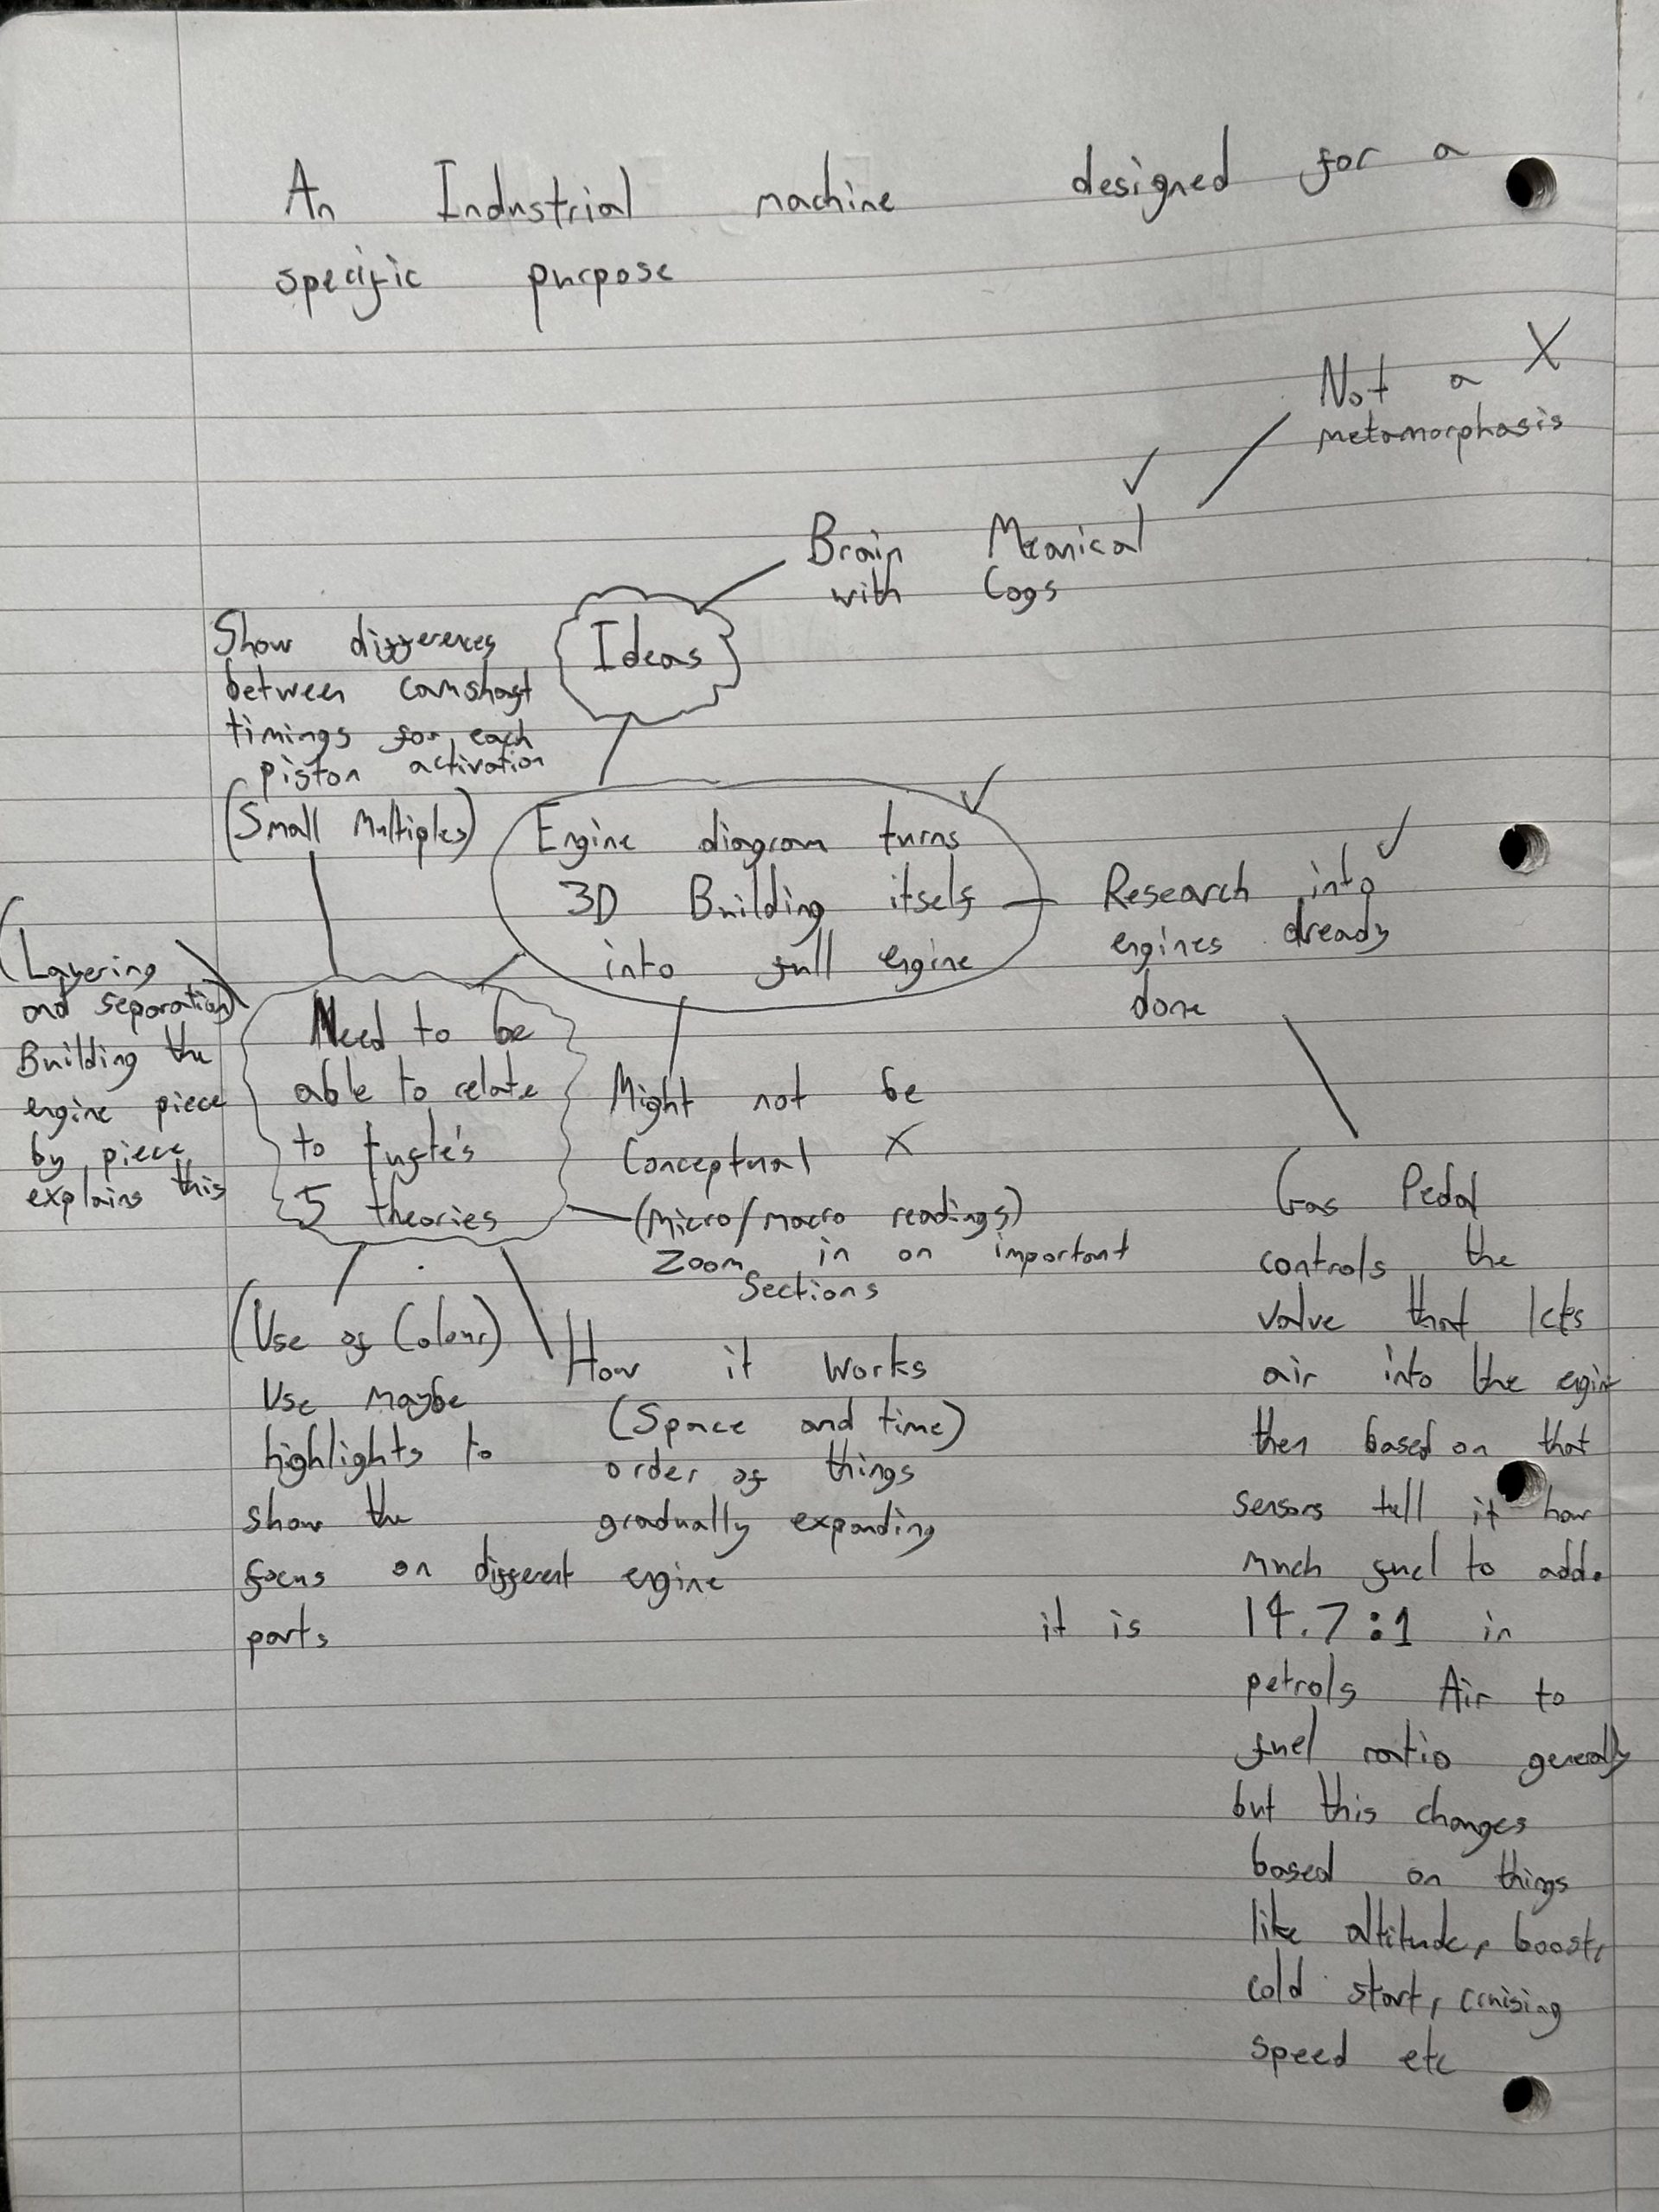 An Industrial machine designed for a
specific purpose
Not a X
metamorphasis
✓
Brain Mecanical
with Cogs
Ideas
Show differences
between camshaft
timings for each
piston activation
(Small Multiples)
✓
Engine diagram turns
3D Building itself
into full engine
✓
Research into
engines already
done
(Layering
and separation)
Building the
engine piece
by piece
explains this
Need to be
able to relate
to tufte's
5 theories
Might not be
Conceptual X
(Micro/macro readings)
Zoom in on important
Sections
(Use of Colour)
Use maybe
highlights to
show the
focus on different engine
parts
How it works
(Space and time)
order of things
gradually expanding
Gas Pedal
controls the
valve that lets
air into the engin
then based on that
sensors tell it how
much fuel to add.
it is 14.7:1 in
petrols Air to
fuel ratio generally
but this changes
based on things
like altitude, boost,
cold start, cruising
speed etc